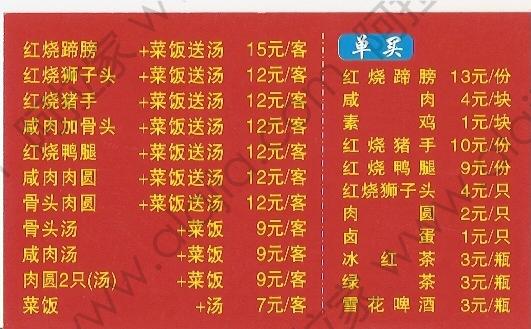 红烧蹄膀 +菜饭送汤 15元/客
红烧狮子头 +菜饭送汤 12元/客
红烧猪手 +菜饭送汤 12元/客
咸肉加骨头 +菜饭送汤 12元/客
红烧鸭腿 +菜饭送汤 12元/客
咸肉肉圆 +菜饭送汤 12元/客
骨头肉圆 +菜饭送汤 12元/客
骨头汤 +菜饭 9元/客
咸肉汤 +菜饭 9元/客
肉圆2只(汤) +菜饭 9元/客
菜饭 +汤 7元/客
单买
红烧蹄膀 13元/份
咸肉 4元/块
素鸡 1元/块
红烧猪手 10元/份
红烧鸭腿 9元/份
红烧狮子头 4元/只
肉圆 2元/只
卤蛋 1元/只
冰红茶 3元/瓶
绿茶 3元/瓶
雪花啤酒 3元/瓶